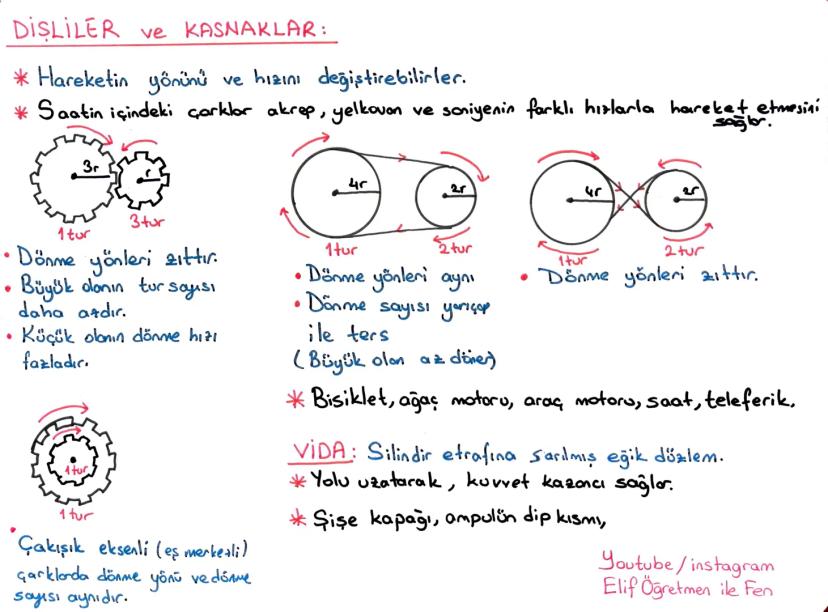 DİŞLİLER ve KASNAKLAR:
* Hareketin yönünü ve hızını değiştirebilirler.
* Saatin içindeki çarklar akrep, yelkovan ve saniyenin farklı hızlarla hareket etmesini
sağlar.
3r
r
1 tur
3 tur
• Dönme yönleri zıttır.
• Büyük olanın tur sayısı
daha azdır.
• Küçük olanın dönme hızı
fazladır.
4r
2r
1 tur
2 tur
• Dönme yönleri aynı
• Dönme sayısı yarıçap
ile ters
(Büyük olan az döner)
4r
2r
1 tur
2 tur
• Dönme yönleri zıttır.
* Bisiklet, ağaç motoru, araç motoru, saat, teleferik.
1 tur
1 tur
• Çakışık eksenli (eş merkezli)
çarklarda dönme yönü ve dönme
sayısı aynıdır.
VİDA: Silindir etrafına sarılmış eğik düzlem.
* Yolu uzatarak, kuvvet kazancı sağlar.
* Şişe kapağı, ampulün dip kısmı,
Youtube / instagram
Elif Öğretmen ile Fen